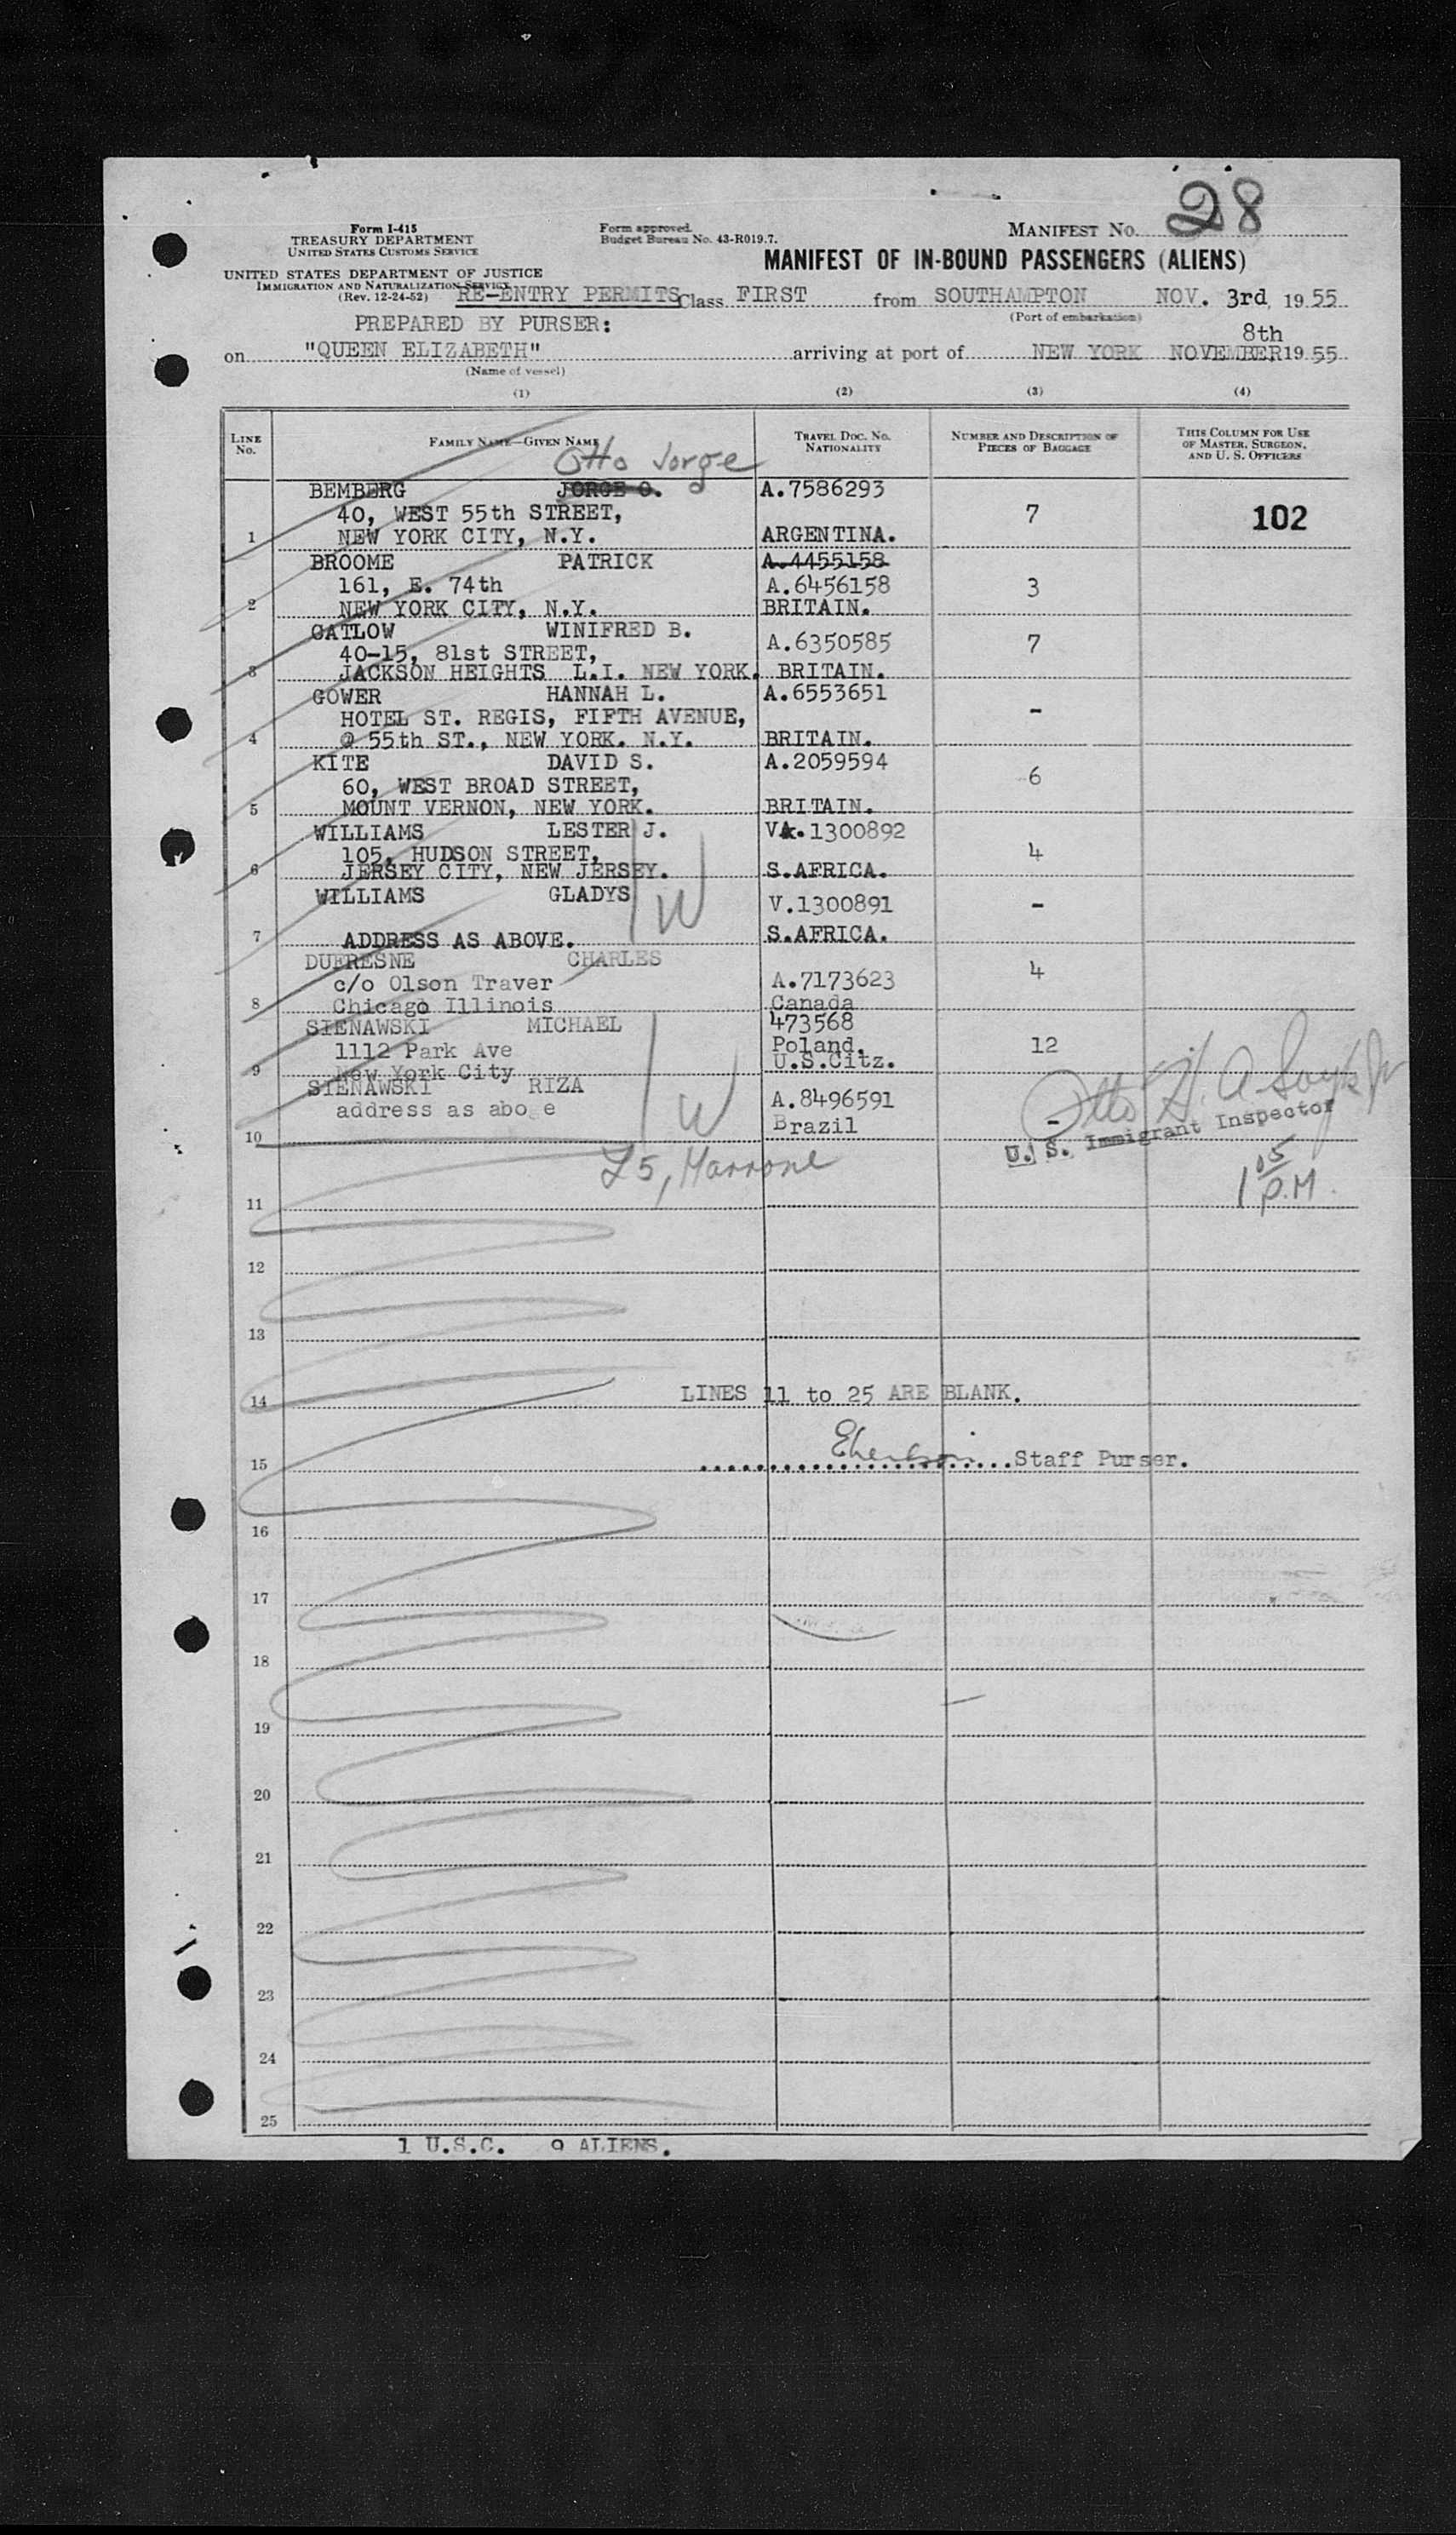 28
Form I-415
TREASURY DEPARTMENT
UNITED STATES CUSTOMS SERVICE
Form approved.
Budget Bureau No. 43-R019.7.
MANIFEST NO.
MANIFEST OF IN-BOUND PASSENGERS (ALIENS)
UNITED STATES DEPARTMENT OF JUSTICE
IMMIGRATION AND NATURALIZATION SERVICE
(Rev. 12-24-52)
RE-ENTRY PERMITS Class FIRST from SOUTHAMPTON NOV. 3rd, 1955
(Port of embarkation)
PREPARED BY PURSER:
8th
on "QUEEN ELIZABETH" arriving at port of NEW YORK NOVEMBER 1955
(Name of vessel)
(1) (2) (3) (4)
LINE NO.
FAMILY NAME—GIVEN NAME
TRAVEL DOC. NO. NATIONALITY
NUMBER AND DESCRIPTION OF PIECES OF BAGGAGE
THIS COLUMN FOR USE OF MASTER, SURGEON, AND U. S. OFFICERS
Otto Jorge
BEMBERG JORGE O. A.7586293
40, WEST 55th STREET, 7 102
1 NEW YORK CITY, N.Y. ARGENTINA.
BROOME PATRICK A.4455158
161, E. 74th A.6456158 3
2 NEW YORK CITY, N.Y. BRITAIN.
CATLOW WINIFRED B.
40-15, 81st STREET, A.6350585 7
3 JACKSON HEIGHTS L.I. NEW YORK. BRITAIN.
GOWER HANNAH L. A.6553651
HOTEL ST. REGIS, FIFTH AVENUE, -
4 @ 55th ST., NEW YORK. N.Y. BRITAIN.
KITE DAVID S. A.2059594
60, WEST BROAD STREET, 6
5 MOUNT VERNON, NEW YORK. BRITAIN.
WILLIAMS LESTER J. V.1300892
105, HUDSON STREET, 4
6 JERSEY CITY, NEW JERSEY. S.AFRICA.
WILLIAMS GLADYS V.1300891 -
W
7 ADDRESS AS ABOVE. S.AFRICA.
DUFRESNE CHARLES 4
c/o Olson Traver A.7173623
8 Chicago Illinois Canada
SIENAWSKI MICHAEL 473568
1112 Park Ave Poland, 12
9 New York City U.S.Citz.
SIENAWSKI RIZA A.8496591
address as abo e Brazil -
W
10
Otto
U. S. Immigrant Inspector
L5, Marrone
1 05 P.M.
11
12
13
14 LINES 11 to 25 ARE BLANK.
15 Staff Purser.
16
17
18
19
20
21
22
23
24
25
1 U.S.C. 9 ALIENS.